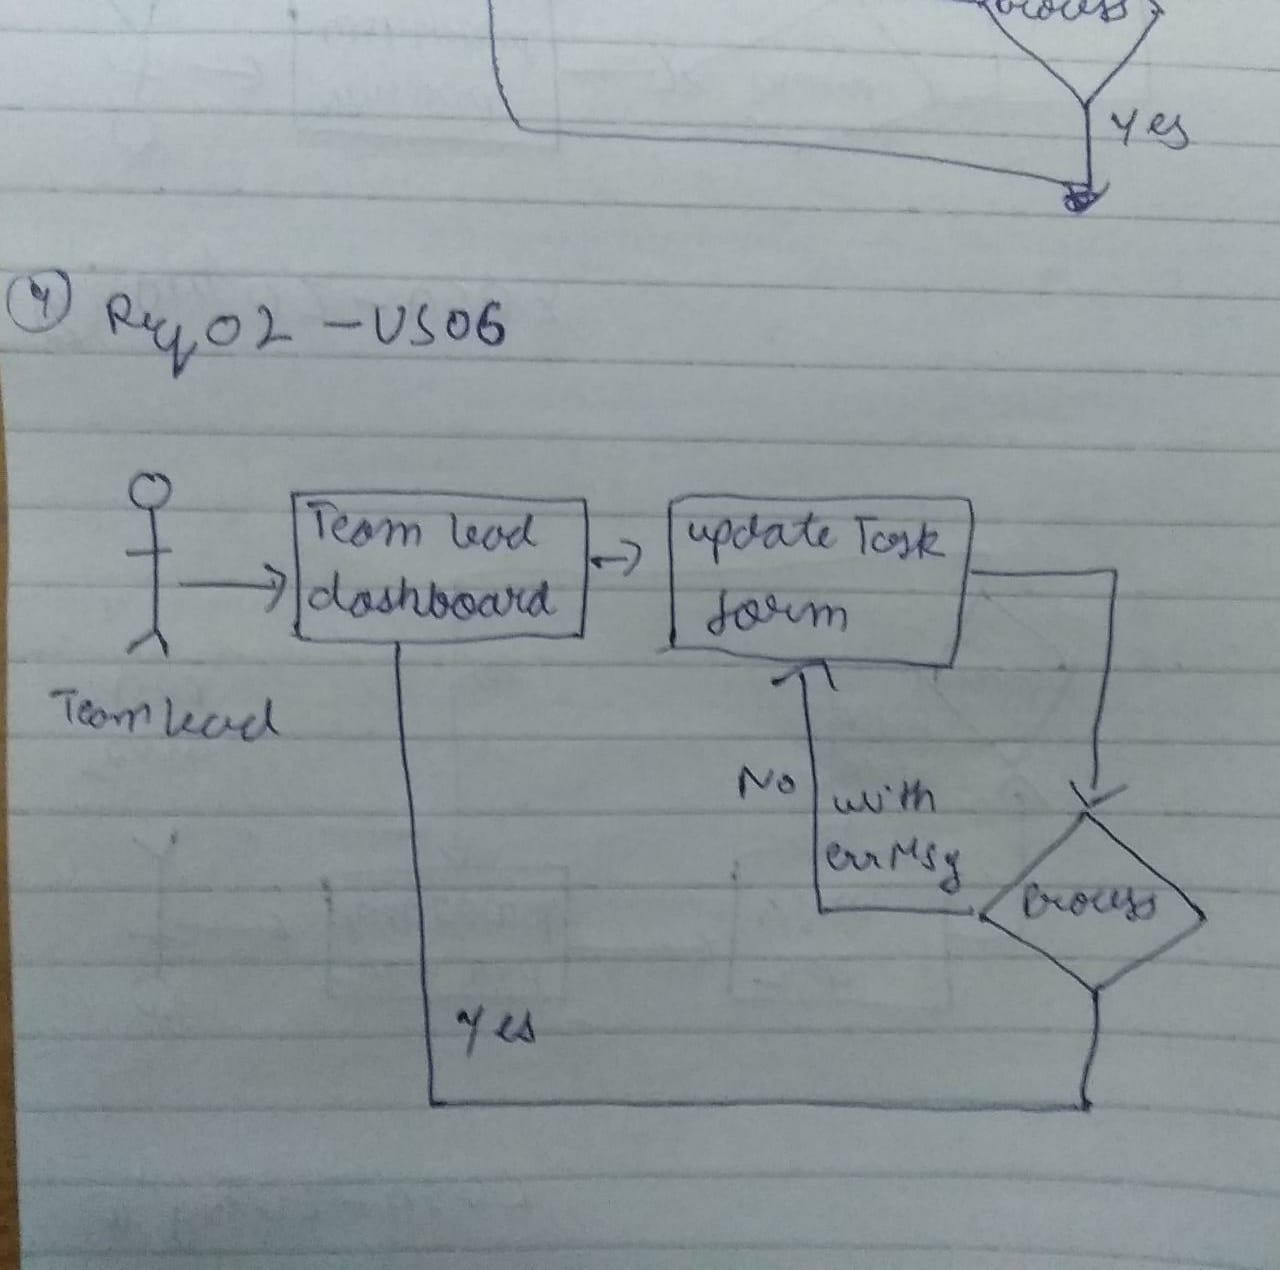 Process
Yes
4 Req 02 - US06
Team lead
dashboard
update Task
form
Team lead
No
with
errMsg
Process
Yes